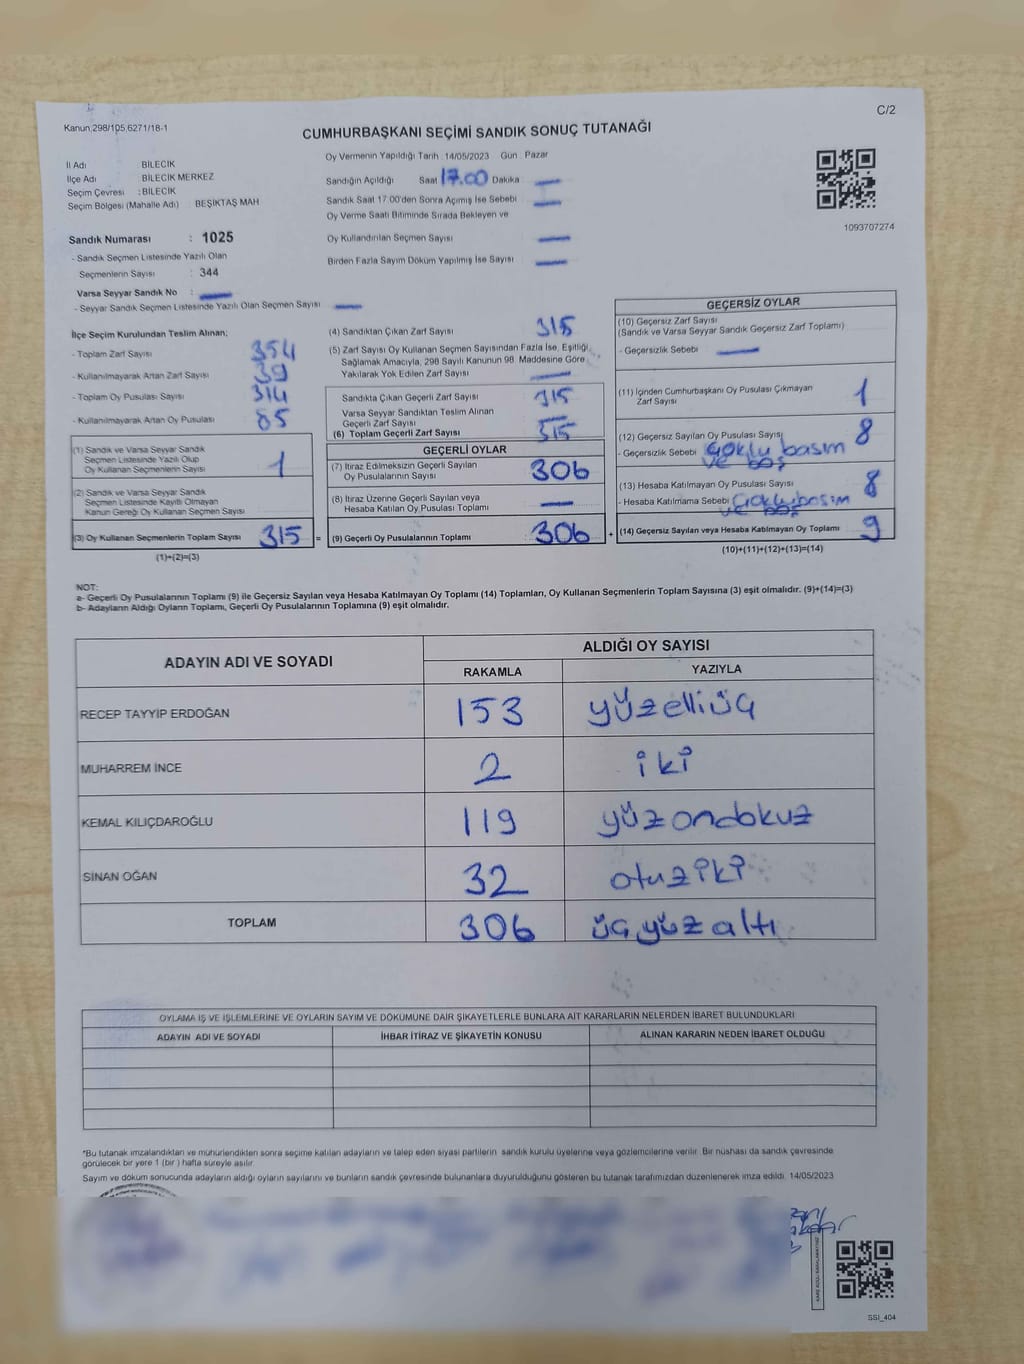 C/2
Kanun;298/105,6271/18-1
CUMHURBAŞKANI SEÇİMİ SANDIK SONUÇ TUTANAĞI
İl Adı BİLECİK
İlçe Adı BİLECİK MERKEZ
Seçim Çevresi : BİLECİK
Seçim Bölgesi (Mahalle Adı) BEŞİKTAŞ MAH
Sandık Numarası : 1025
- Sandık Seçmen Listesinde Yazılı Olan
Seçmenlerin Sayısı : 344
Varsa Seyyar Sandık No :
- Seyyar Sandık Seçmen Listesinde Yazılı Olan Seçmen Sayısı
Oy Vermenin Yapıldığı Tarih : 14/05/2023 Gün : Pazar
Sandığın Açıldığı Saat 17.00 Dakika
Sandık Saat 17:00'den Sonra Açımış İse Sebebi
Oy Verme Saati Bitiminde Sırada Bekleyen ve
Oy Kullandırılan Seçmen Sayısı
Birden Fazla Sayım Döküm Yapılmış İse Sayısı
1093707274
İlçe Seçim Kurulundan Teslim Alınan;
- Toplam Zarf Sayısı 354
- Kullanılmayarak Artan Zarf Sayısı 39
- Toplam Oy Pusulası Sayısı 314
- Kullanılmayarak Artan Oy Pusulası 85
(1) Sandık ve Varsa Seyyar Sandık
Seçmen Listesinde Yazılı Olup
Oy Kullanan Seçmenlerin Sayısı 1
(2) Sandık ve Varsa Seyyar Sandık
Seçmen Listesinde Kayıtlı Olmayan
Kanun Gereği Oy Kullanan Seçmen Sayısı
(3) Oy Kullanan Seçmenlerin Toplam Sayısı 315 =
(1)+(2)=(3)
(4) Sandıktan Çıkan Zarf Sayısı 315
(5) Zarf Sayısı Oy Kullanan Seçmen Sayısından Fazla İse, Eşitliği
Sağlamak Amacıyla, 298 Sayılı Kanunun 98. Maddesine Göre
Yakılarak Yok Edilen Zarf Sayısı
Sandıkta Çıkan Geçerli Zarf Sayısı 315
Varsa Seyyar Sandıktan Teslim Alınan
Geçerli Zarf Sayısı
(6) Toplam Geçerli Zarf Sayısı 315
GEÇERLİ OYLAR
(7) İtiraz Edilmeksizin Geçerli Sayılan
Oy Pusulalarının Sayısı 306
(8) İtiraz Üzerine Geçerli Sayılan veya
Hesaba Katılan Oy Pusulası Toplamı
(9) Geçerli Oy Pusulalarının Toplamı 306 +
GEÇERSİZ OYLAR
(10) Geçersiz Zarf Sayısı
(Sandık ve Varsa Seyyar Sandık Geçersiz Zarf Toplamı)
- Geçersizlik Sebebi
(11) İçinden Cumhurbaşkanı Oy Pusulası Çıkmayan
Zarf Sayısı 1
(12) Geçersiz Sayılan Oy Pusulası Sayısı 8
- Geçersizlik Sebebi çoklu basım
ve boş
(13) Hesaba Katılmayan Oy Pusulası Sayısı 8
- Hesaba Katılmama Sebebi Çoklu basım
ve boş
(14) Geçersiz Sayılan veya Hesaba Katılmayan Oy Toplamı 9
(10)+(11)+(12)+(13)=(14)
NOT:
a- Geçerli Oy Pusulalarının Toplamı (9) ile Geçersiz Sayılan veya Hesaba Katılmayan Oy Toplamı (14) Toplamları, Oy Kullanan Seçmenlerin Toplam Sayısına (3) eşit olmalıdır. (9)+(14)=(3)
b- Adayların Aldığı Oyların Toplamı, Geçerli Oy Pusulalarının Toplamına (9) eşit olmalıdır.
ADAYIN ADI VE SOYADI ALDIĞI OY SAYISI
RAKAMLA YAZIYLA
RECEP TAYYİP ERDOĞAN 153 yüzelliüç
MUHARREM İNCE 2 iki
KEMAL KILIÇDAROĞLU 119 yüzondokuz
SİNAN OĞAN 32 otuziki
TOPLAM 306 üçyüzaltı
OYLAMA İŞ VE İŞLEMLERİNE VE OYLARIN SAYIM VE DÖKÜMÜNE DAİR ŞİKAYETLERLE BUNLARA AİT KARARLARIN NELERDEN İBARET BULUNDUKLARI
ADAYIN ADI VE SOYADI İHBAR İTİRAZ VE ŞİKAYETİN KONUSU ALINAN KARARIN NEDEN İBARET OLDUĞU
*Bu tutanak imzalandıktan ve mühürlendikten sonra seçime katılan adayların ve talep eden siyasi partilerin sandık kurulu üyelerine veya gözlemcilerine verilir. Bir nüshası da sandık çevresinde
görülecek bir yere 1 (bir) hafta süreyle asılır
Sayım ve döküm sonucunda adayların aldığı oyların sayılarını ve bunların sandık çevresinde bulunanlara duyurulduğunu gösteren bu tutanak tarafımızdan düzenlenerek imza edildi. 14/05/2023
SSI_404